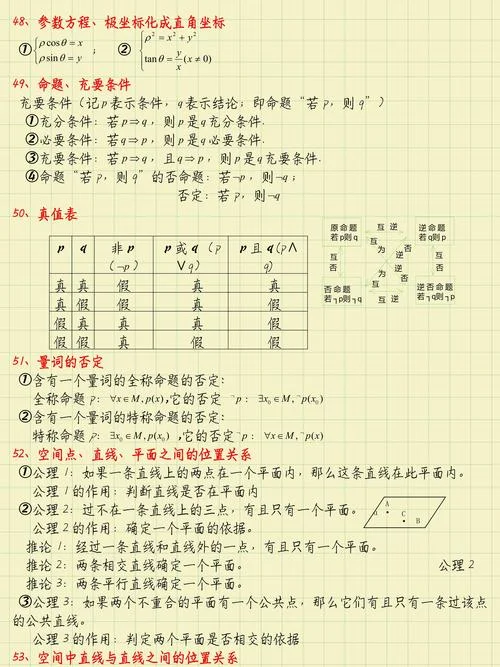 48、参数方程、极坐标化成直角坐标
①{ρcosθ=x ρsinθ=y ； ②{ρ²=x²+y² tanθ=y/x(x≠0)
49、命题、充要条件
充要条件（记p表示条件，q表示结论；即命题“若p，则q”）
①充分条件：若p⇒q，则p是q充分条件.
②必要条件：若q⇒p，则p是q必要条件.
③充要条件：若p⇒q，且q⇒p，则p是q充要条件.
④命题“若p，则q”的否命题：若¬p，则¬q；
否定：若p，则¬q
50、真值表
p q 非p（¬p） p或q（p∨q） p且q(p∧q)
真 真 假 真 真
真 假 假 真 假
假 真 真 真 假
假 假 真 假 假
原命题 若p则q 互逆 逆命题 若q则p
互否 互为逆否 互为逆否 互否
否命题 若┐p则┐q 互逆 逆否命题 若┐q则┐p
51、量词的否定
①含有一个量词的全称命题的否定：
全称命题p：∀x∈M,p(x),它的否定¬p：∃x₀∈M,¬p(x₀)
②含有一个量词的特称命题的否定：
特称命题p：∃x₀∈M,p(x₀),它的否定¬p：∀x∈M,¬p(x)
52、空间点、直线、平面之间的位置关系
①公理1：如果一条直线上的两点在一个平面内，那么这条直线在此平面内。
公理1的作用：判断直线是否在平面内
②公理2：过不在一条直线上的三点，有且只有一个平面。
α A C B
公理2的作用：确定一个平面的依据。
推论1：经过一条直线和直线外的一点，有且只有一个平面。
推论2：两条相交直线确定一个平面。 公理2
推论3：两条平行直线确定一个平面。
③公理3：如果两个不重合的平面有一个公共点，那么它们有且只有一条过该点
的公共直线。
公理3的作用：判定两个平面是否相交的依据
53、空间中直线与直线之间的位置关系